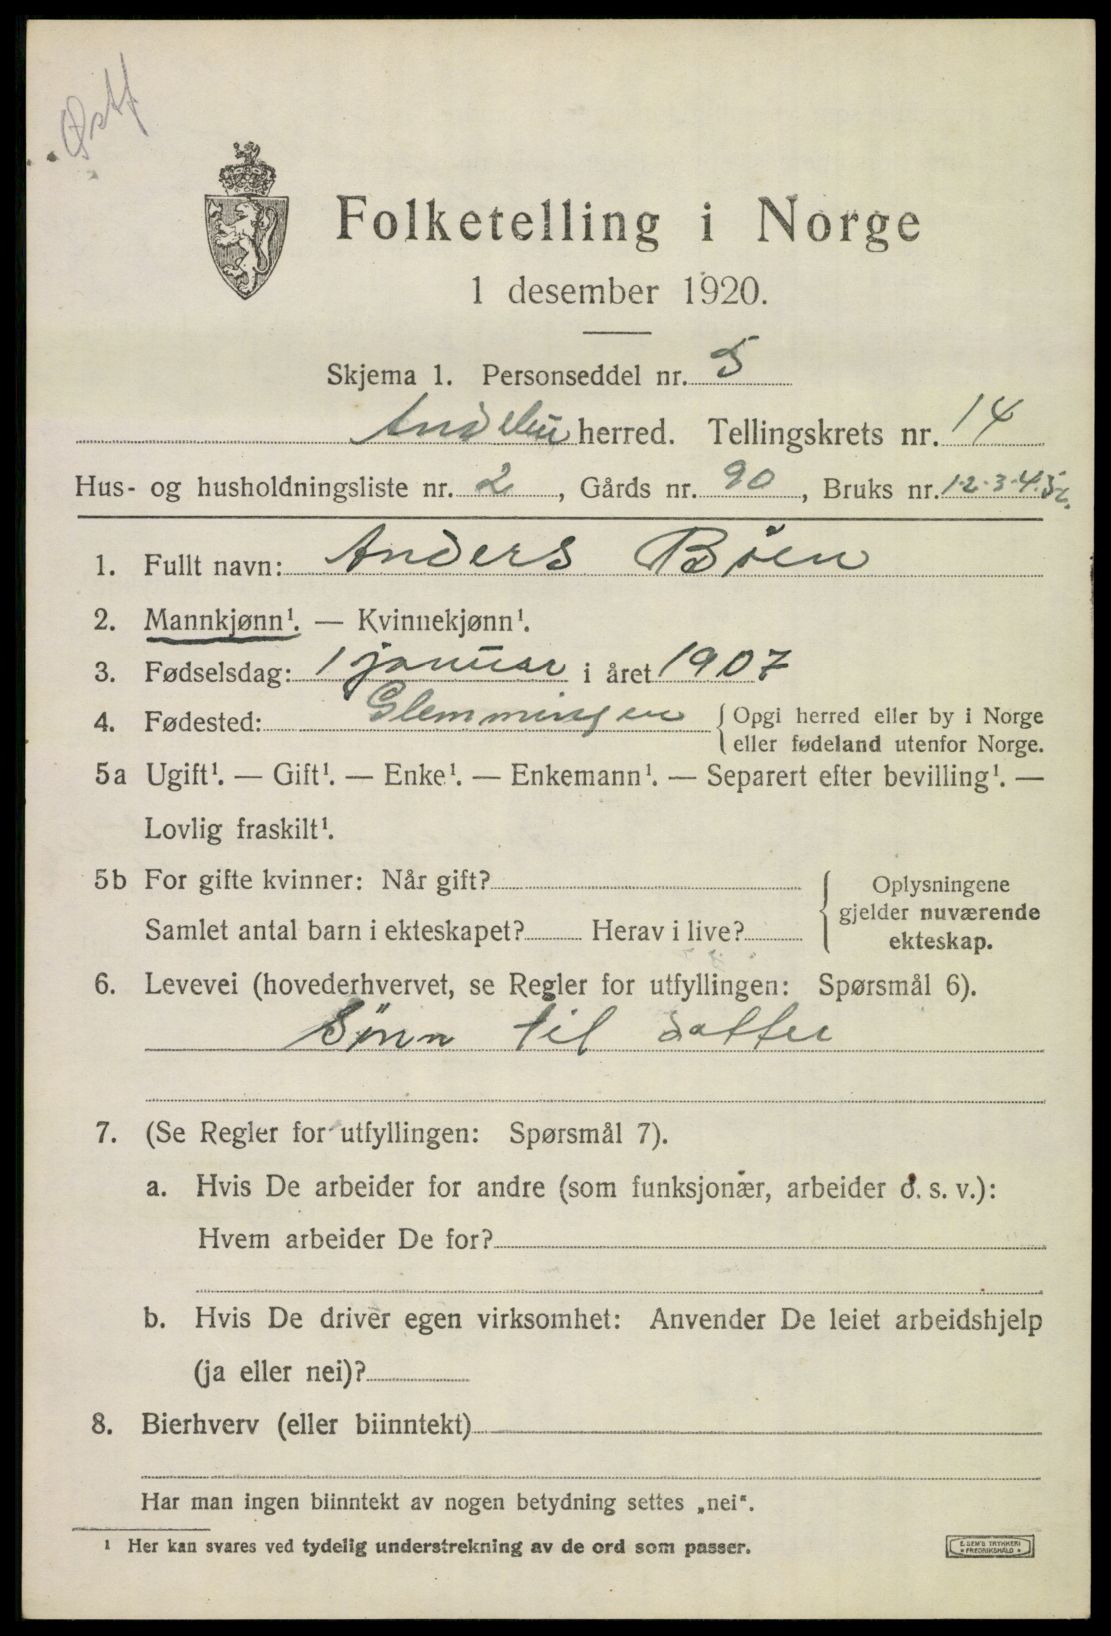 Østf
Folketelling i Norge
1 desember 1920.
Skjema 1. Personseddel nr. 5
Andebu herred. Tellingskrets nr. 14
Hus- og husholdningsliste nr. 2, Gårds nr. 90, Bruks nr. 1·2·3·4·5
1. Fullt navn: Anders Bøen
2. Mannkjønn¹. — Kvinnekjønn¹.
3. Fødselsdag: 1 januar i året 1907
4. Fødested: Glemmingen { Opgi herred eller by i Norge
eller fødeland utenfor Norge.
5a Ugift¹. — Gift¹. — Enke¹. — Enkemann¹. — Separert efter bevilling¹. —
Lovlig fraskilt¹.
5b For gifte kvinner: Når gift?
Samlet antal barn i ekteskapet? Herav i live?
{ Oplysningene
gjelder nuværende
ekteskap.
6. Levevei (hovederhvervet, se Regler for utfyllingen: Spørsmål 6).
Sønn til
7. (Se Regler for utfyllingen: Spørsmål 7).
a. Hvis De arbeider for andre (som funksjonær, arbeider o. s. v.):
Hvem arbeider De for?
b. Hvis De driver egen virksomhet: Anvender De leiet arbeidshjelp
(ja eller nei)?
8. Bierhverv (eller biinntekt)
Har man ingen biinntekt av nogen betydning settes „nei“.
¹ Her kan svares ved tydelig understrekning av de ord som passer.
E. SEM'S TRYKKERI
FREDRIKSHALD